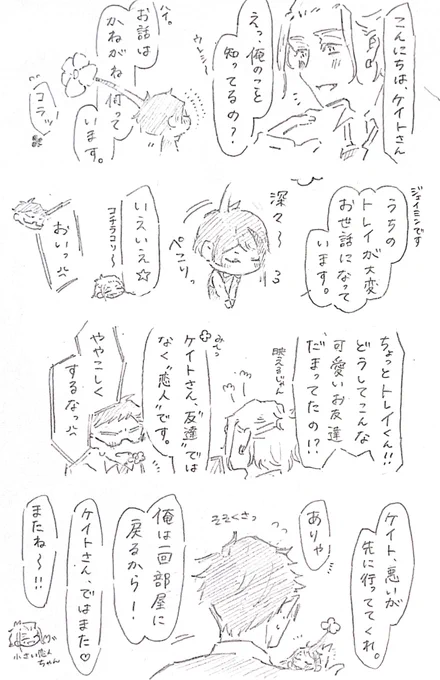 こんにちは、ケイトさん
えっ、俺のこと
知ってるの？
ウレシ〜
ハイ。
お話は
かねがね伺って
います。
コラッ
ジェイミンです
うちの
トレイが大変
お世話になって
います。
深々〜
ぺこりっ
いえいえ☆
コチラコソ〜
おいっ
ちょっとトレイくん!!
どうしてこんな
可愛いお友達
だまってたの!?
映えるじゃん
みんっ
ケイトさん、“友達”では
なく“恋人”です。
ややこしく
するなっ
ケイト、悪いが
先に行っててくれ。
ありゃ
そそくさっ
俺は一回部屋に
戻るから！
ケイトさん、ではまた♡
またね〜!!
小さい恋人
ちゃん